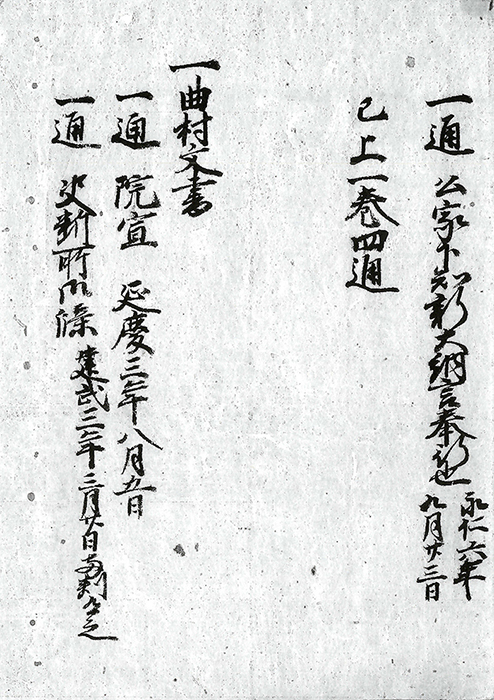 一通 公家下知新大納言奉行
永仁六年
九月廿三日
已上一巻四通
一曲村文書
一通 院宣 延慶三年八月五日
一通 決断所 建武三年三月廿日